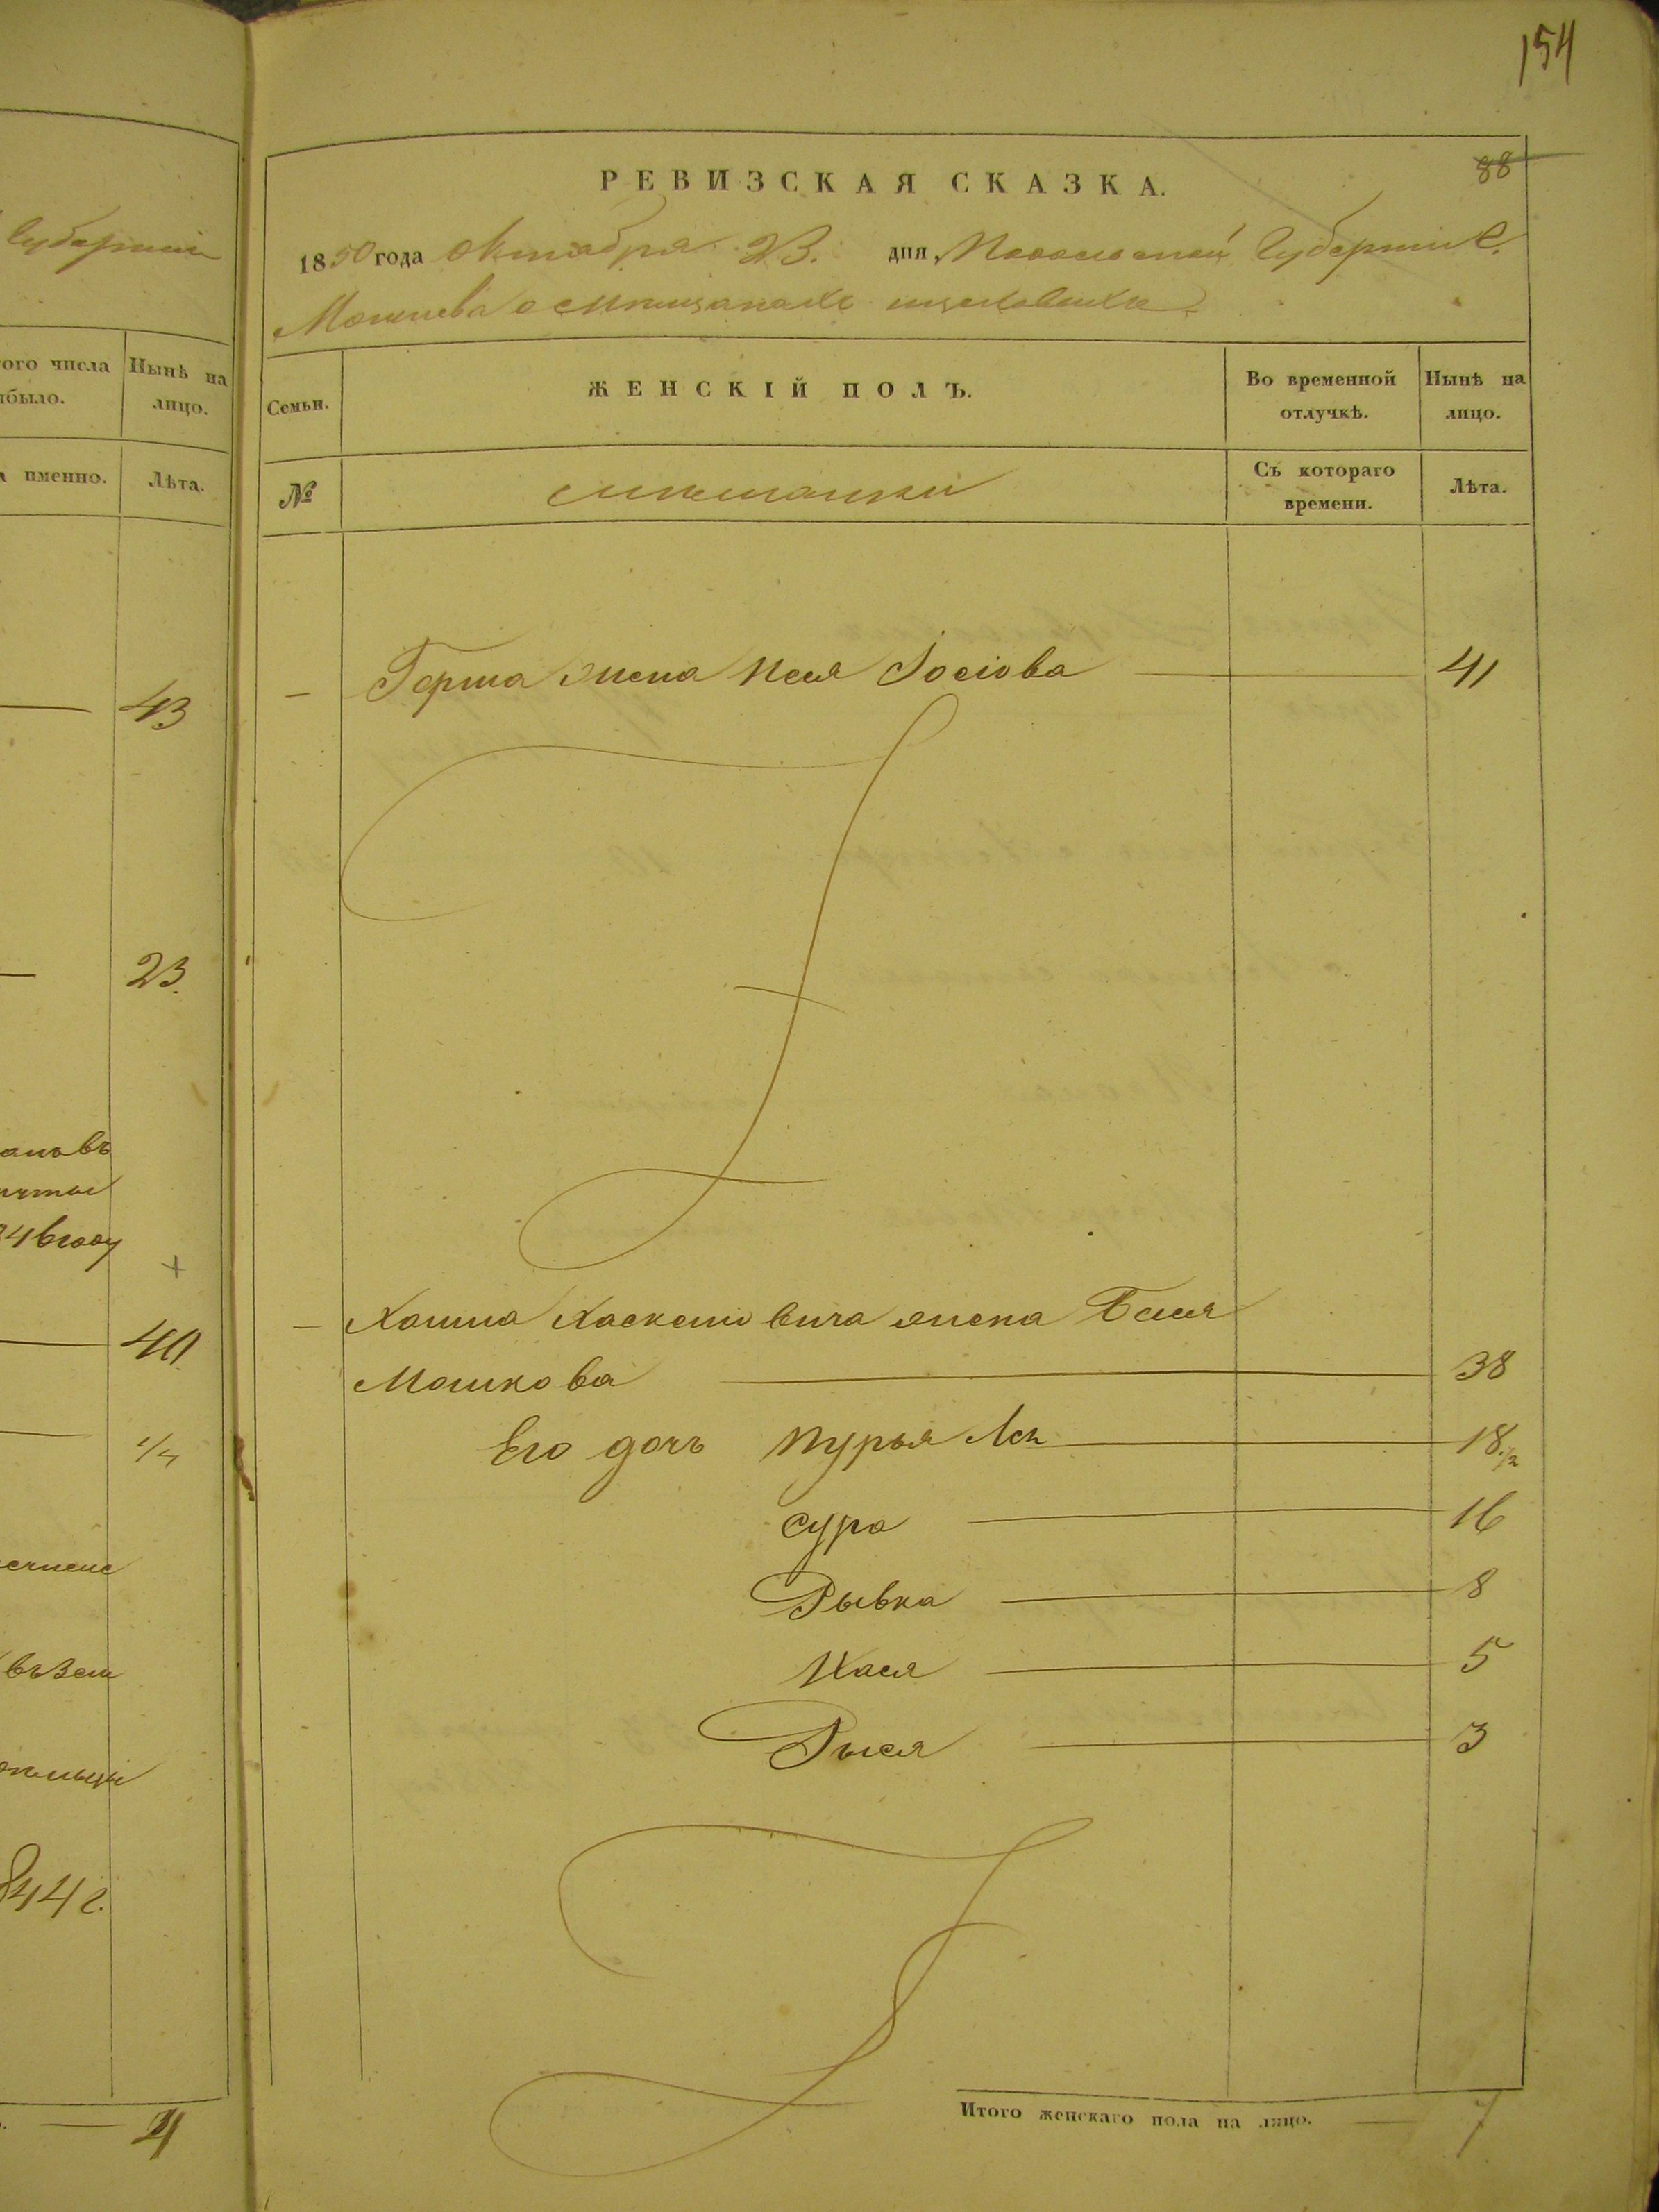 154
88
РЕВИЗСКАЯ СКАЗКА.
1850 года Октября 23. дня, Подольской Губерніи Г.
Могилева о мѣщанахъ
Семьи.
ЖЕНСКІЙ ПОЛЪ.
Во временной отлучкѣ.
Нынѣ на лицо.
№
мѣщанки
Съ котораго времени.
Лѣта.
Герша жена Песя Іосіова 41
Хаима Хаскелiовича жена Бася
Мошкова 38
Его дочь Пурья Лея 18 1/2
Сура 16
Рывка 8
Хася 5
Рыся 3
Итого женскаго пола на лицо. 7
Губерніи
того числа
было.
Нынѣ на
лицо.
именно.
Лѣта.
43
23.
году
40.
1/4
844 г.
4